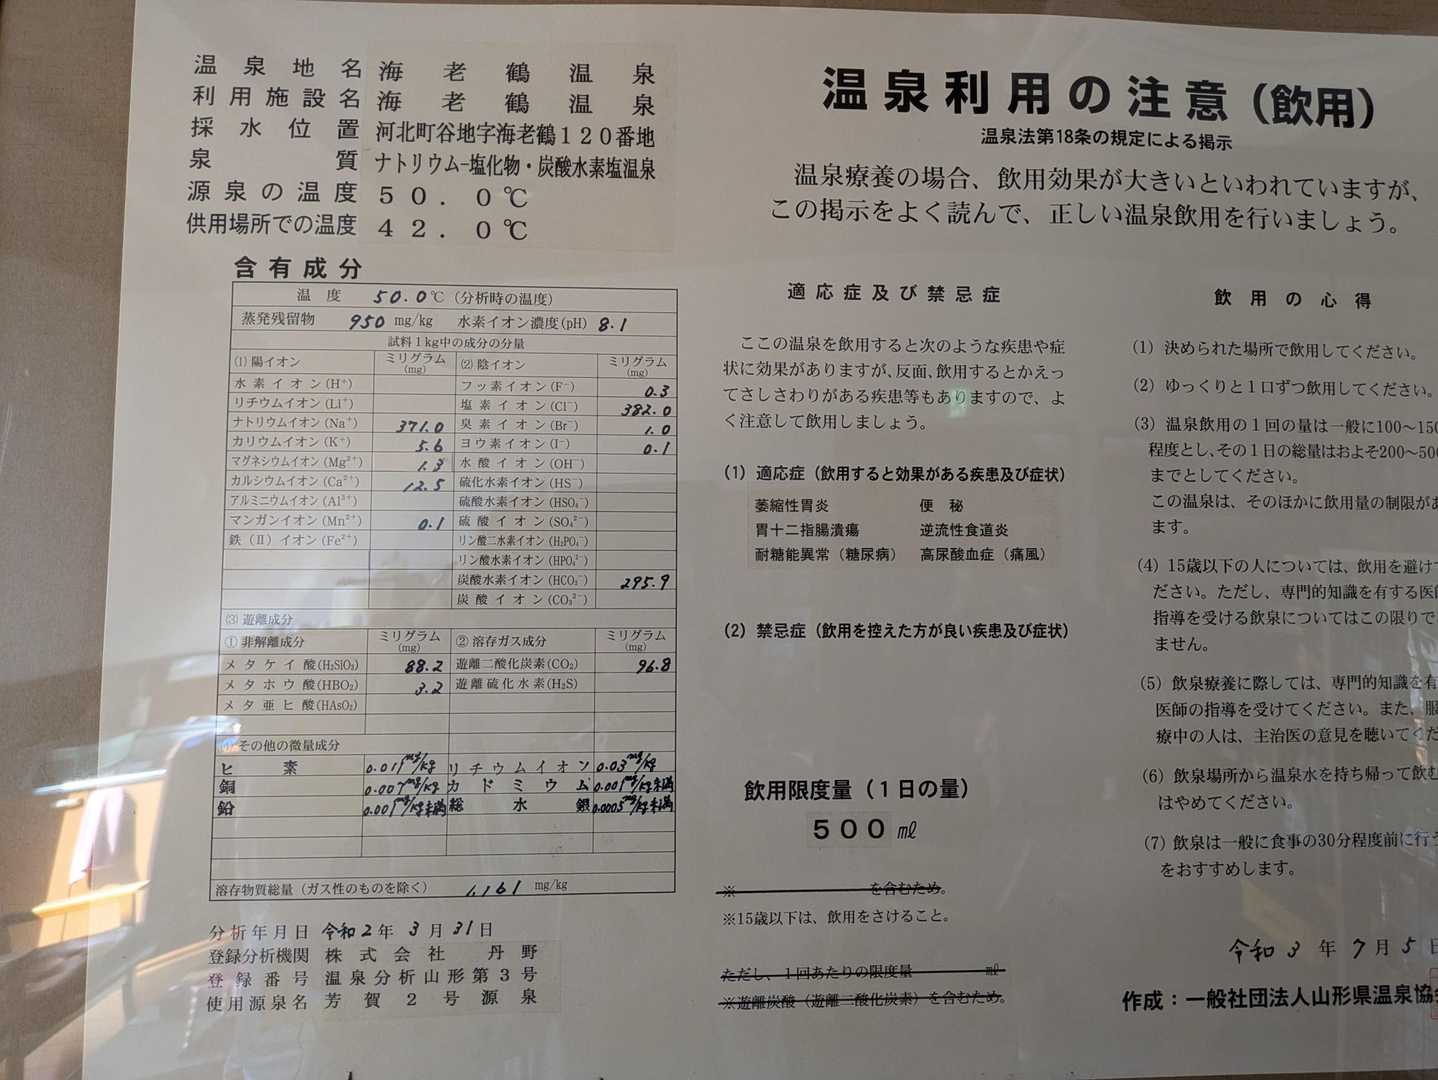 温泉地名 海老鶴温泉
利用施設名 海老鶴温泉
採水位置 河北町谷地字海老鶴120番地
泉質 ナトリウム-塩化物・炭酸水素塩温泉
源泉の温度 50.0℃
供用場所での温度 42.0℃
含有成分
温度 50.0℃(分析時の温度)
蒸発残留物 950 mg/kg 水素イオン濃度(pH) 8.1
試料1kg中の成分の分量
(1) 陽イオン ミリグラム(mg) (2) 陰イオン ミリグラム(mg)
水素イオン(H⁺) フッ素イオン(F⁻) 0.3
リチウムイオン(LI⁺) 塩素イオン(Cl⁻) 382.0
ナトリウムイオン(Na⁺) 371.0 臭素イオン(Br⁻) 1.0
カリウムイオン(K⁺) 5.6 ヨウ素イオン(I⁻) 0.1
マグネシウムイオン(Mg²⁺) 1.3 水酸イオン(OH⁻)
カルシウムイオン(Ca²⁺) 12.5 硫化水素イオン(HS⁻)
アルミニウムイオン(Al³⁺) 硫酸水素イオン(HSO₄⁻)
マンガンイオン(Mn²⁺) 0.1 硫酸イオン(SO₄²⁻)
鉄(Ⅱ)イオン(Fe²⁺) リン酸二水素イオン(H₂PO₄⁻)
リン酸水素イオン(HPO₄²⁻)
炭酸水素イオン(HCO₃⁻) 295.9
炭酸イオン(CO₃²⁻)
(3) 遊離成分
① 非解離成分 ミリグラム(mg) ② 溶存ガス成分 ミリグラム(mg)
メタケイ酸(H₂SiO₃) 88.2 遊離二酸化炭素(CO₂) 96.8
メタホウ酸(HBO₂) 3.2 遊離硫化水素(H₂S)
メタ亜ヒ酸(HAsO₂)
その他の微量成分
ヒ素 0.011mg/kg リチウムイオン 0.03mg/kg
銅 0.007mg/kg カドミウム 0.001mg/kg未満
鉛 0.001mg/kg未満 総水銀 0.0005mg/kg未満
溶存物質総量(ガス性のものを除く) 1,161 mg/kg
分析年月日 令和2年3月31日
登録分析機関 株式会社 丹野
登録番号 温泉分析山形第3号
使用源泉名 芳賀2号源泉
温泉利用の注意(飲用)
温泉法第18条の規定による掲示
温泉療養の場合、飲用効果が大きいといわれていますが、
この掲示をよく読んで、正しい温泉飲用を行いましょう。
適応症及び禁忌症
ここの温泉を飲用すると次のような疾患や症
状に効果がありますが、反面、飲用するとかえっ
てさしさわりがある疾患等もありますので、よ
く注意して飲用しましょう。
(1) 適応症(飲用すると効果がある疾患及び症状)
萎縮性胃炎 便秘
胃十二指腸潰瘍 逆流性食道炎
耐糖能異常(糖尿病) 高尿酸血症(痛風)
(2) 禁忌症(飲用を控えた方が良い疾患及び症状)
飲用限度量(1日の量)
500 ㎖
※ を含むため。
※15歳以下は、飲用をさけること。
ただし、1回あたりの限度量 ㎖
※遊離炭酸(遊離二酸化炭素)を含むため。
飲用の心得
(1) 決められた場所で飲用してください。
(2) ゆっくりと1口ずつ飲用してください。
(3) 温泉飲用の1回の量は一般に100～150
程度とし、その1日の総量はおよそ200～500
までとしてください。
この温泉は、そのほかに飲用量の制限があ
ます。
(4) 15歳以下の人については、飲用を避けて
ださい。ただし、専門的知識を有する医師
指導を受ける飲泉についてはこの限りで
ません。
(5) 飲泉療養に際しては、専門的知識を有
医師の指導を受けてください。また、服
療中の人は、主治医の意見を聴いてくだ
(6) 飲泉場所から温泉水を持ち帰って飲む
はやめてください。
(7) 飲泉は一般に食事の30分程度前に行う
をおすすめします。
令和3年7月5日
作成：一般社団法人山形県温泉協会